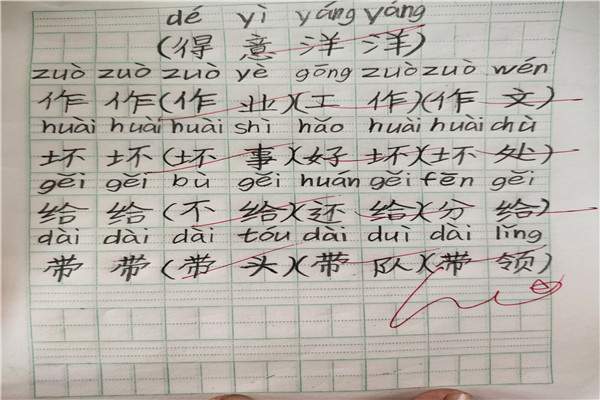 dé yì yáng yáng
(得意洋洋)
zuò zuò zuò yè gōng zuò zuò wén
作 作(作 业)(工 作)(作 文)
huài huài huài shì hǎo huài huài chù
坏 坏(坏 事)(好 坏)(坏 处)
gěi gěi bù gěi huán gěi fēn gěi
给 给(不 给)(还 给)(分 给)
dài dài dài tóu dài duì dài lǐng
带 带(带 头)(带 队)(带 领)